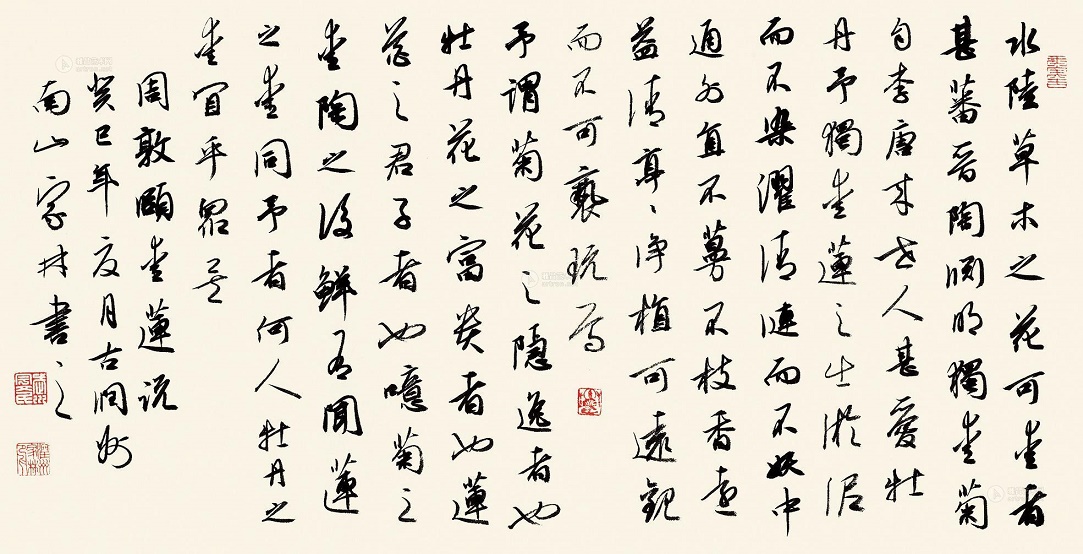 水陸草木之花可愛者
甚蕃晉陶淵明獨愛菊
自李唐来世人甚愛牡
丹予獨愛蓮之出淤泥
而不染濯清漣而不妖中
通外直不蔓不枝香遠
益清亭々淨植可遠觀
而不可褻玩焉
予謂菊花之隱逸者也
牡丹花之富貴者也蓮
花之君子者也噫菊之
愛陶之後鮮有聞蓮
之愛同予者何人牡丹之
愛宜乎眾矣
周敦頤愛蓮説
癸巳年夏月古潤州
南山家林書之